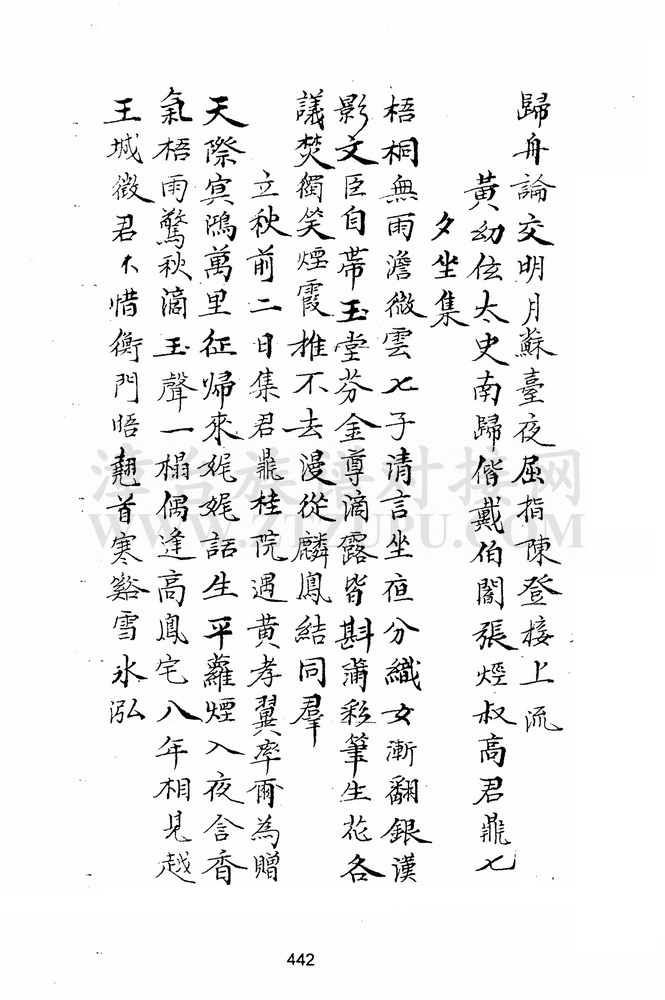 歸舟論交明月蘇臺夜屈指陳登接上流
黃幼伭太史南歸偕戴伯闇張烴叔高君鼎七
夕坐集
梧桐無雨澹微雲七子清言坐夜分織女漸翻銀漢
影文臣自帶玉堂芬金尊滴露皆斟蒲彩筆生花各
議焚獨笑煙霞推不去漫從麟鳳結同羣
立秋前二日集君鼎桂院遇黃孝翼率爾為贈
天際冥鴻萬里征歸來娓娓話生平蘿煙入夜含香
氣梧雨驚秋滴玉聲一榻偶逢高鳳宅八年相見越
王城徵君不惜衡門晤翹首寒谿雪水泓
WWW.ZTZUPU.COM
442